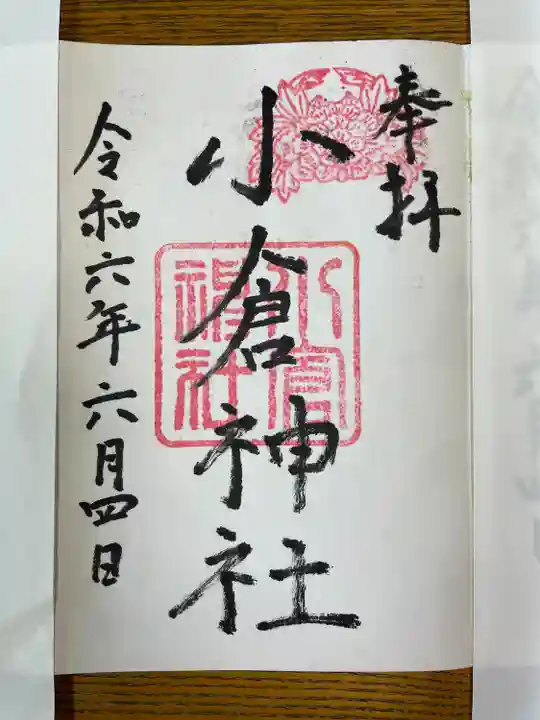 奉拝
小倉神社
小倉
神社
令和六年六月四日